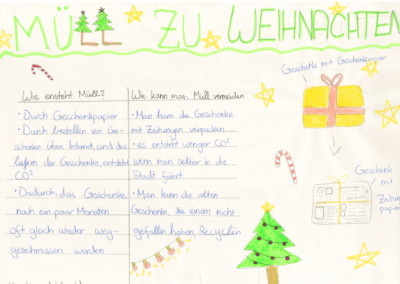 MÜLL ZU WEIHNACHTEN
Geschenk mit Geschenkpapier
Wie ensteht Müll?
• Durch Geschenkpapier
• Durch bestellen von Ge-
schenken übers Internet, und das
liefern der Geschenke, entsteht
CO².
• Dadurch, das Geschenke
nach ein paar Monaten
oft gleich wieder weg-
geschmissen werden
Wie kann man Müll vermeiden
• Man kann die Geschenke
mit Zeitungen verpacken
• es entsteht weniger CO²
wenn man selber in die
Stadt fährt.
• Man kann die alten
Geschenke, die einem nicht
gefallen haben Recyclen
Geschenk
mit
Zeitungs
papier